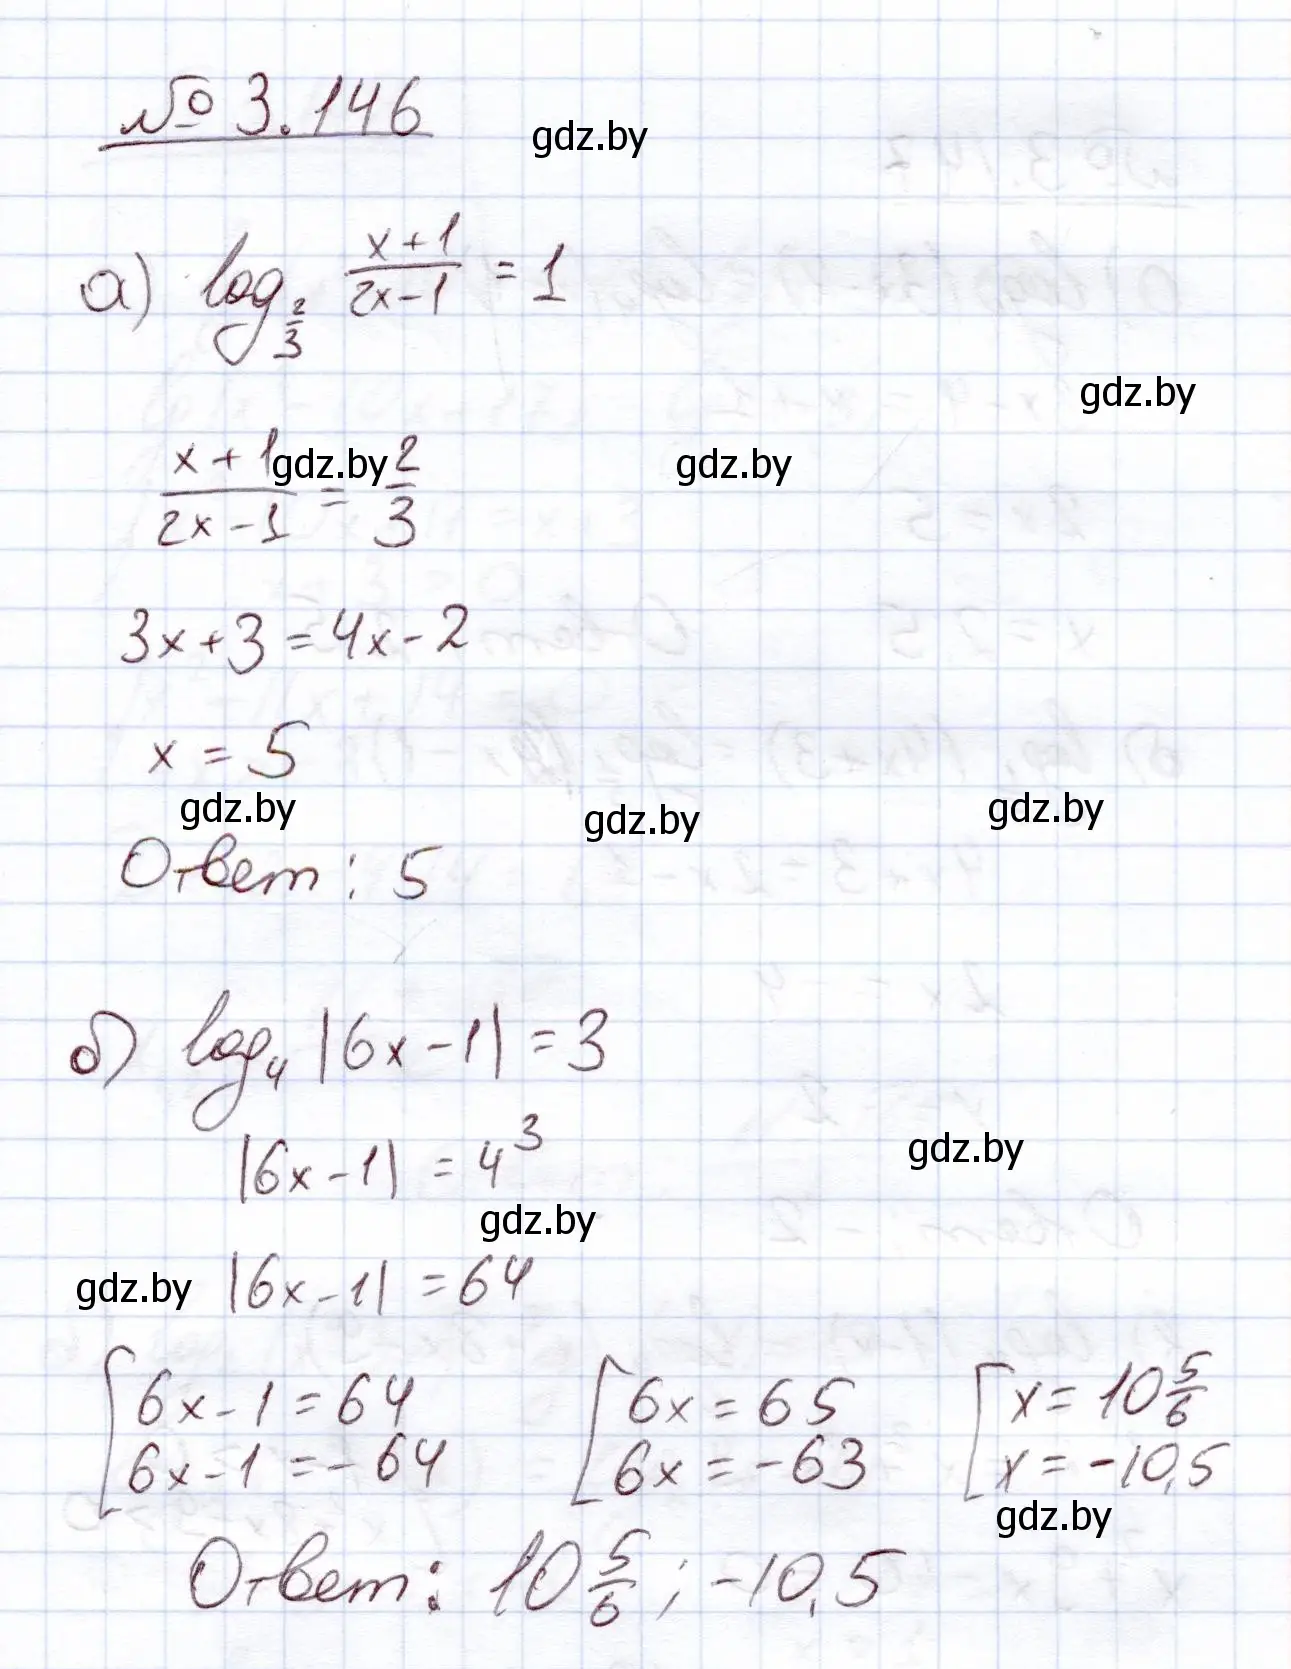 № 3.146
gdz.by
а) log_{2/3} (x+1)/(2x-1) = 1
gdz.by
(x+1)/(2x-1) = 2/3
gdz.by gdz.by
3x+3=4x-2
x = 5
gdz.by gdz.by gdz.by
Ответ: 5
б) log₄ |6x-1| = 3
|6x-1| = 4³
gdz.by
gdz.by
|6x-1| = 64
gdz.by
[6x-1=64 [6x=65 [x=10 5/6
6x-1=-64 6x=-63 x=-10,5
gdz.by
Ответ: 10 5/6; -10,5